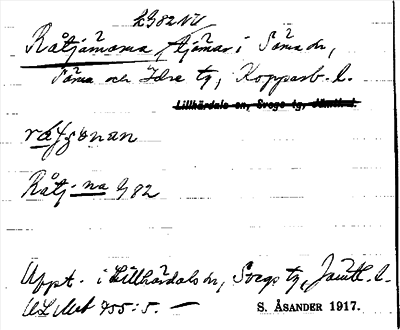 LB82NV
Råtjärnarna, tjärnar i Särna sn,
Särna och Idre tg, Kopparb. l.
Lillhärdals sn, Svegs tg, Jämtl. l.
Råtj-na 982
Uppt. i Lillhärdals sn, Svegs tg, Jämtl. l.
S. ÅSANDER 1917.